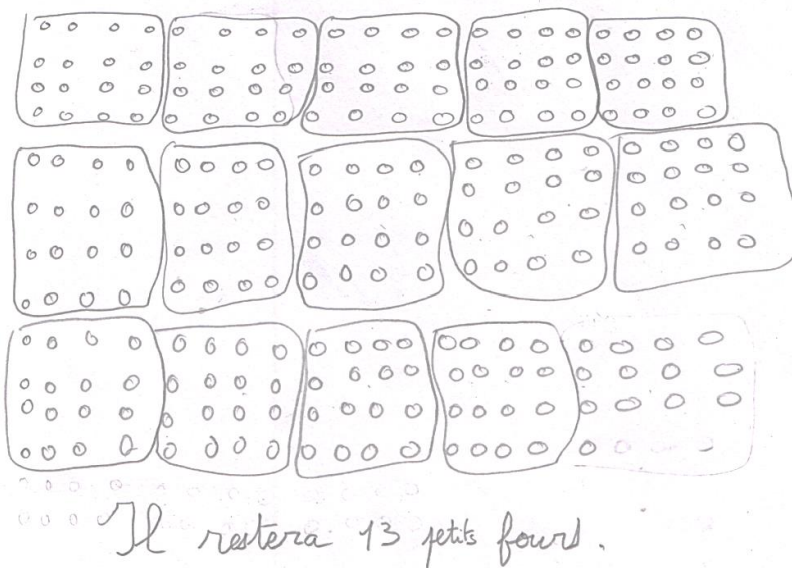 Il restera 13 petits fours.